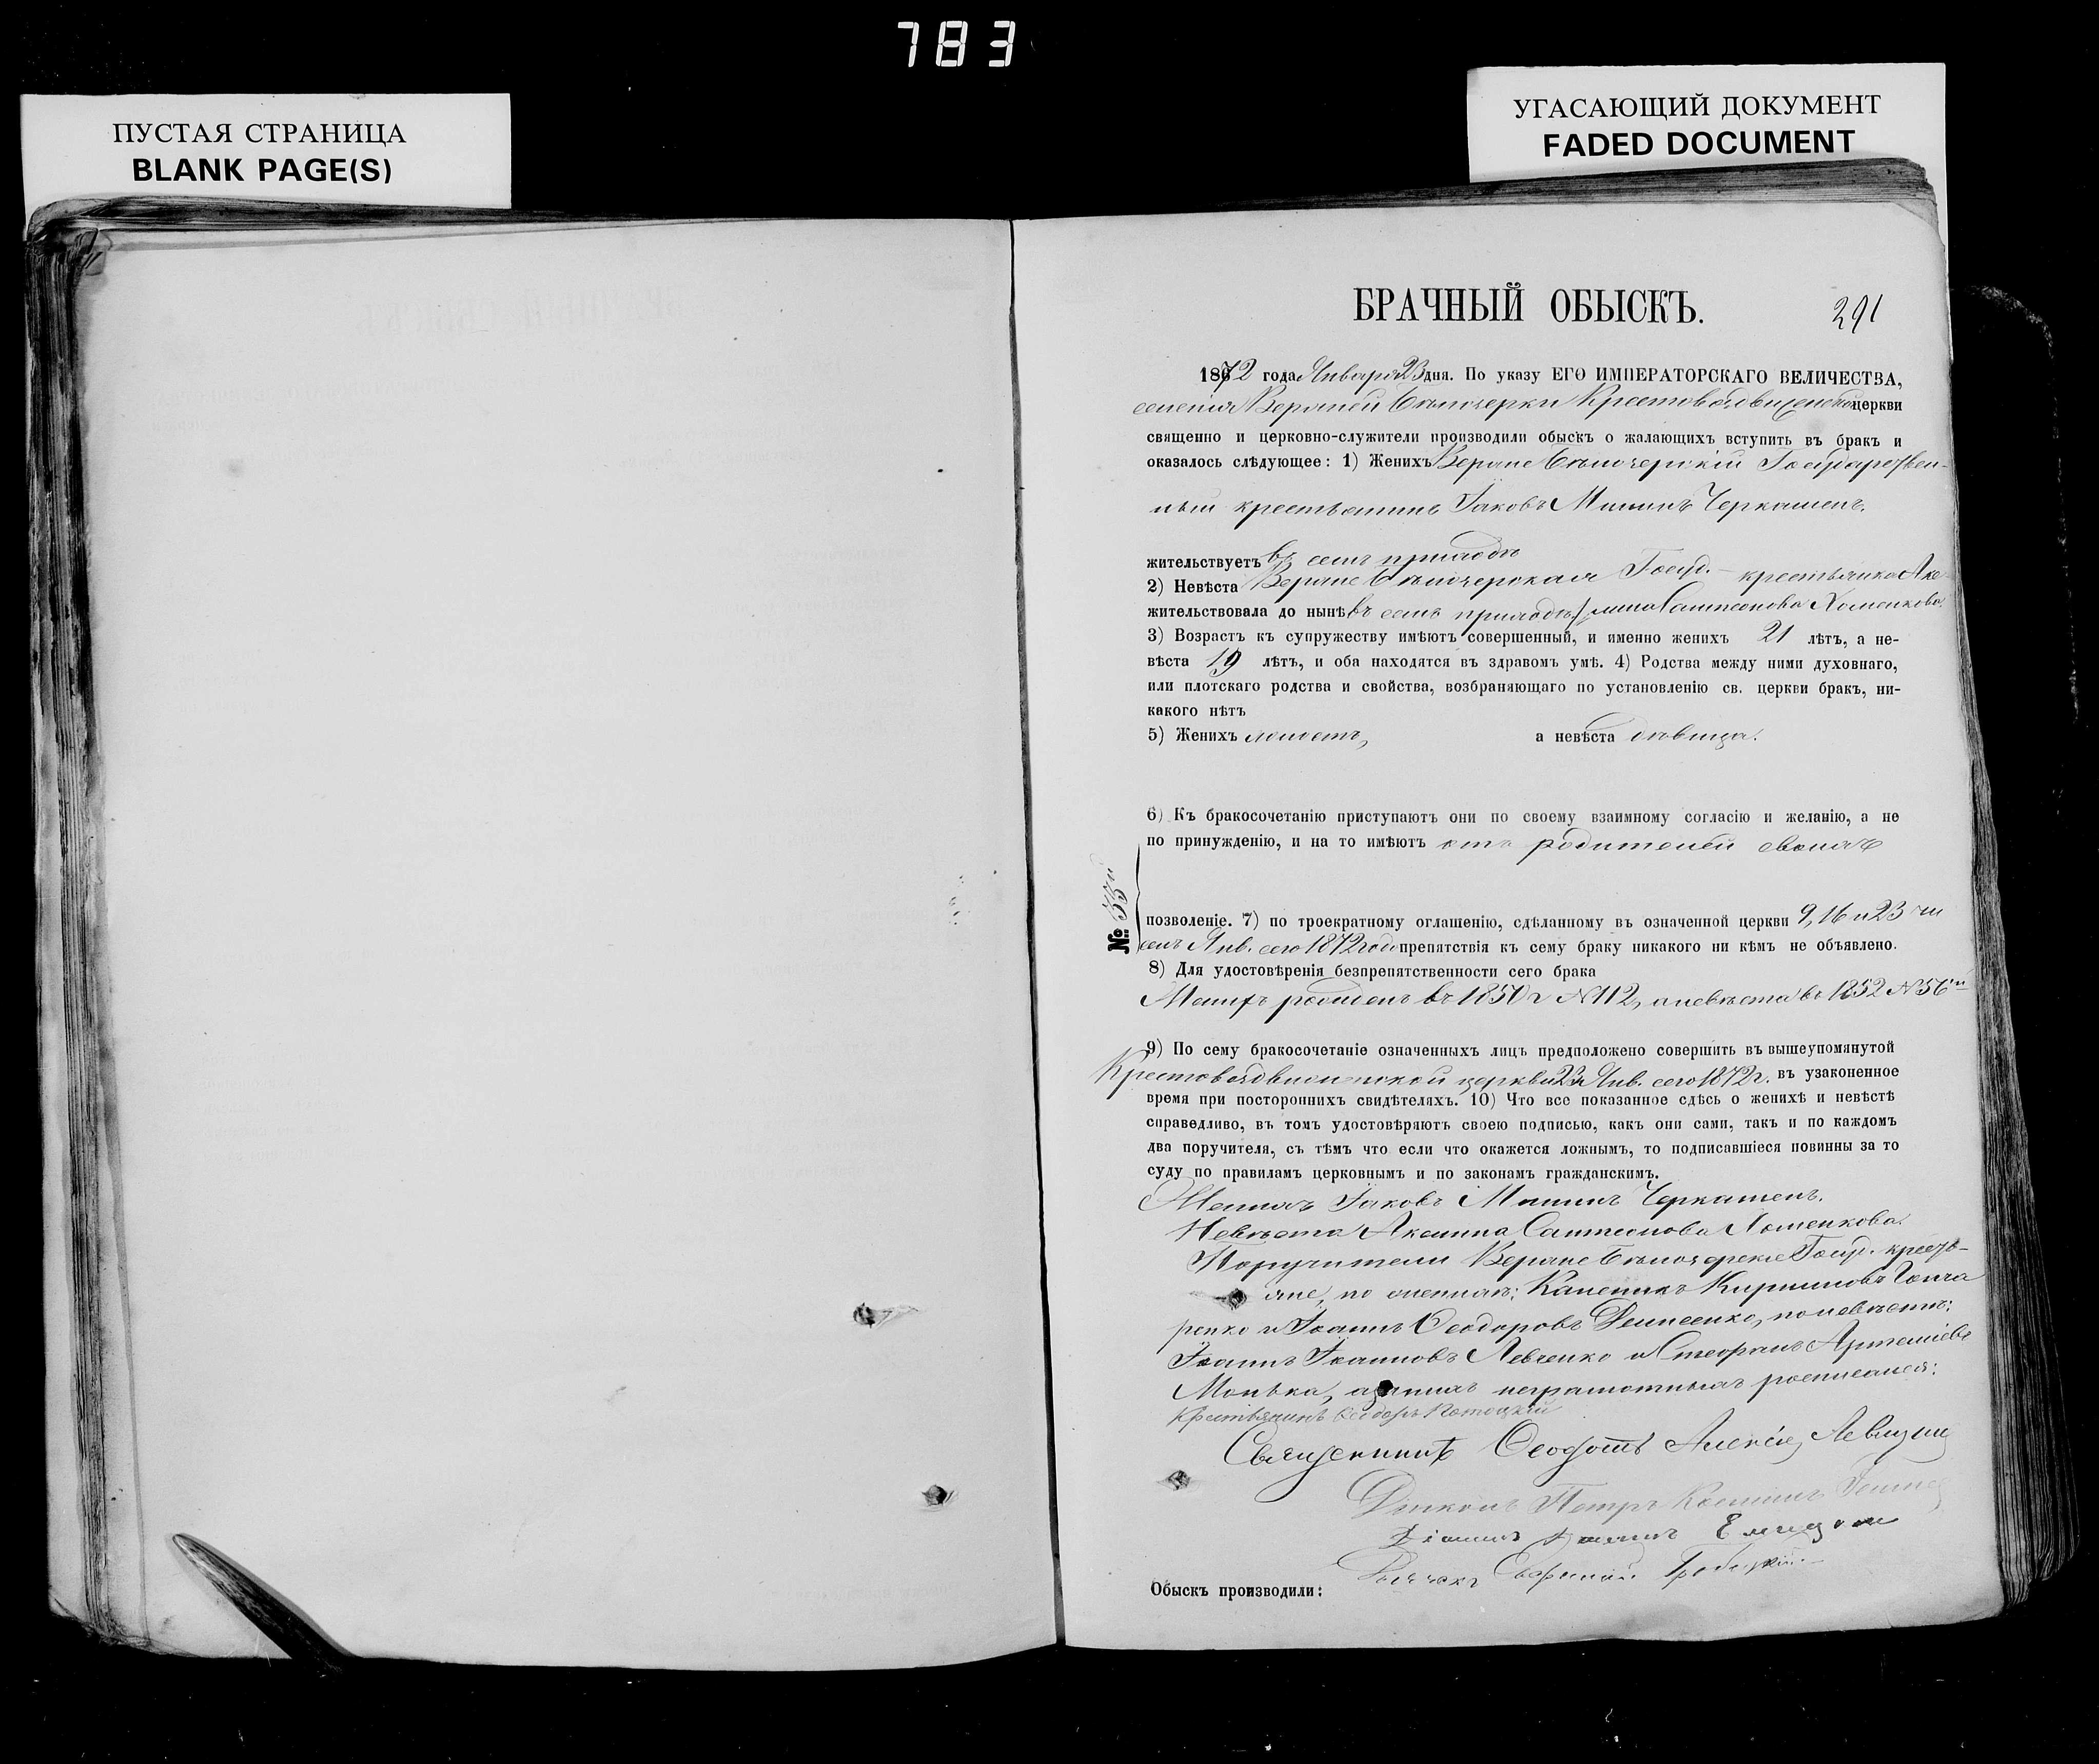 783
ПУСТАЯ СТРАНИЦА
BLANK PAGE(S)
УГАСАЮЩИЙ ДОКУМЕНТ
FADED DOCUMENT
БРАЧНЫЙ ОБЫСКЪ.
291
1872 года Января 23 дня. По указу ЕГО ИМПЕРАТОРСКАГО ВЕЛИЧЕСТВА,
селенія Верхней Крестовоздвиженской церкви
священно и церковно-служители производили обыскъ о жалающихъ вступить въ бракъ и
оказалось слѣдующее: 1) Женихъ Верхне Государствен-
ный крестьянинъ Іаковъ Мининъ Черкашенъ,
жительствуетъ въ семъ приходѣ
2) Невѣста Верхне Госуд. крестьянка Аке-
жительствовала до нынѣ въ семъ приходѣ / мина Сампсонова Хоменкова.
3) Возрастъ къ супружеству имѣютъ совершенный, и именно женихъ 21 лѣтъ, а не-
вѣста 19 лѣтъ, и оба находятся въ здравомъ умѣ. 4) Родства между ними духовнаго,
или плотскаго родства и свойства, возбраняющаго по установленію св. церкви бракъ, ни-
какого нѣтъ
5) Женихъ холостъ, а невѣста дѣвица.
6) Къ бракосочетанію приступаютъ они по своему взаимному согласію и желанію, а не
по принужденію, и на то имѣютъ отъ родителей своихъ
№ 33й
позволеніе. 7) по троекратному оглашенію, сдѣланному въ означенной церкви 9, 16 и 23 чи
селъ Янв. сего 1872 года препятствія къ сему браку никакого ни кѣмъ не объявлено.
8) Для удостовѣренія безпрепятственности сего брака
Женихъ рожденъ въ 1850 г №112, а невѣста въ 1852 №56й
9) По сему бракосочетаніе означенныхъ лицъ предположено совершить въ вышеупомянутой
Крестовоздвиженской церкви 23 Янв. сего 1872 г. въ узаконенное
время при постороннихъ свидѣтеляхъ. 10) Что все показанное сдѣсь о женихѣ и невѣстѣ
справедливо, въ томъ удостовѣряютъ своею подписью, какъ они сами, такъ и по каждомъ
два поручителя, съ тѣмъ что если что окажется ложнымъ, то подписавшіеся повинны за то
суду по правиламъ церковнымъ и по законамъ гражданскимъ.
Женихъ Іаковъ Мининъ Черкашенъ.
Невѣста Акемина Сампсонова Хоменкова.
Поручители Верхне Госуд. кресть-
яне, по женихѣ: Кирилловъ Гонча
ренко и Іоаннъ Ѳеодоровъ Денисенко, по невѣстѣ:
Іоаннъ Іоанновъ Левченко и Стефанъ Артеміевъ
Монька, а за нихъ неграмотныхъ росписался:
Крестьянинъ Ѳеодоръ
Священникъ Ѳеодотъ Алексѣй
Петръ
Обыскъ производили: